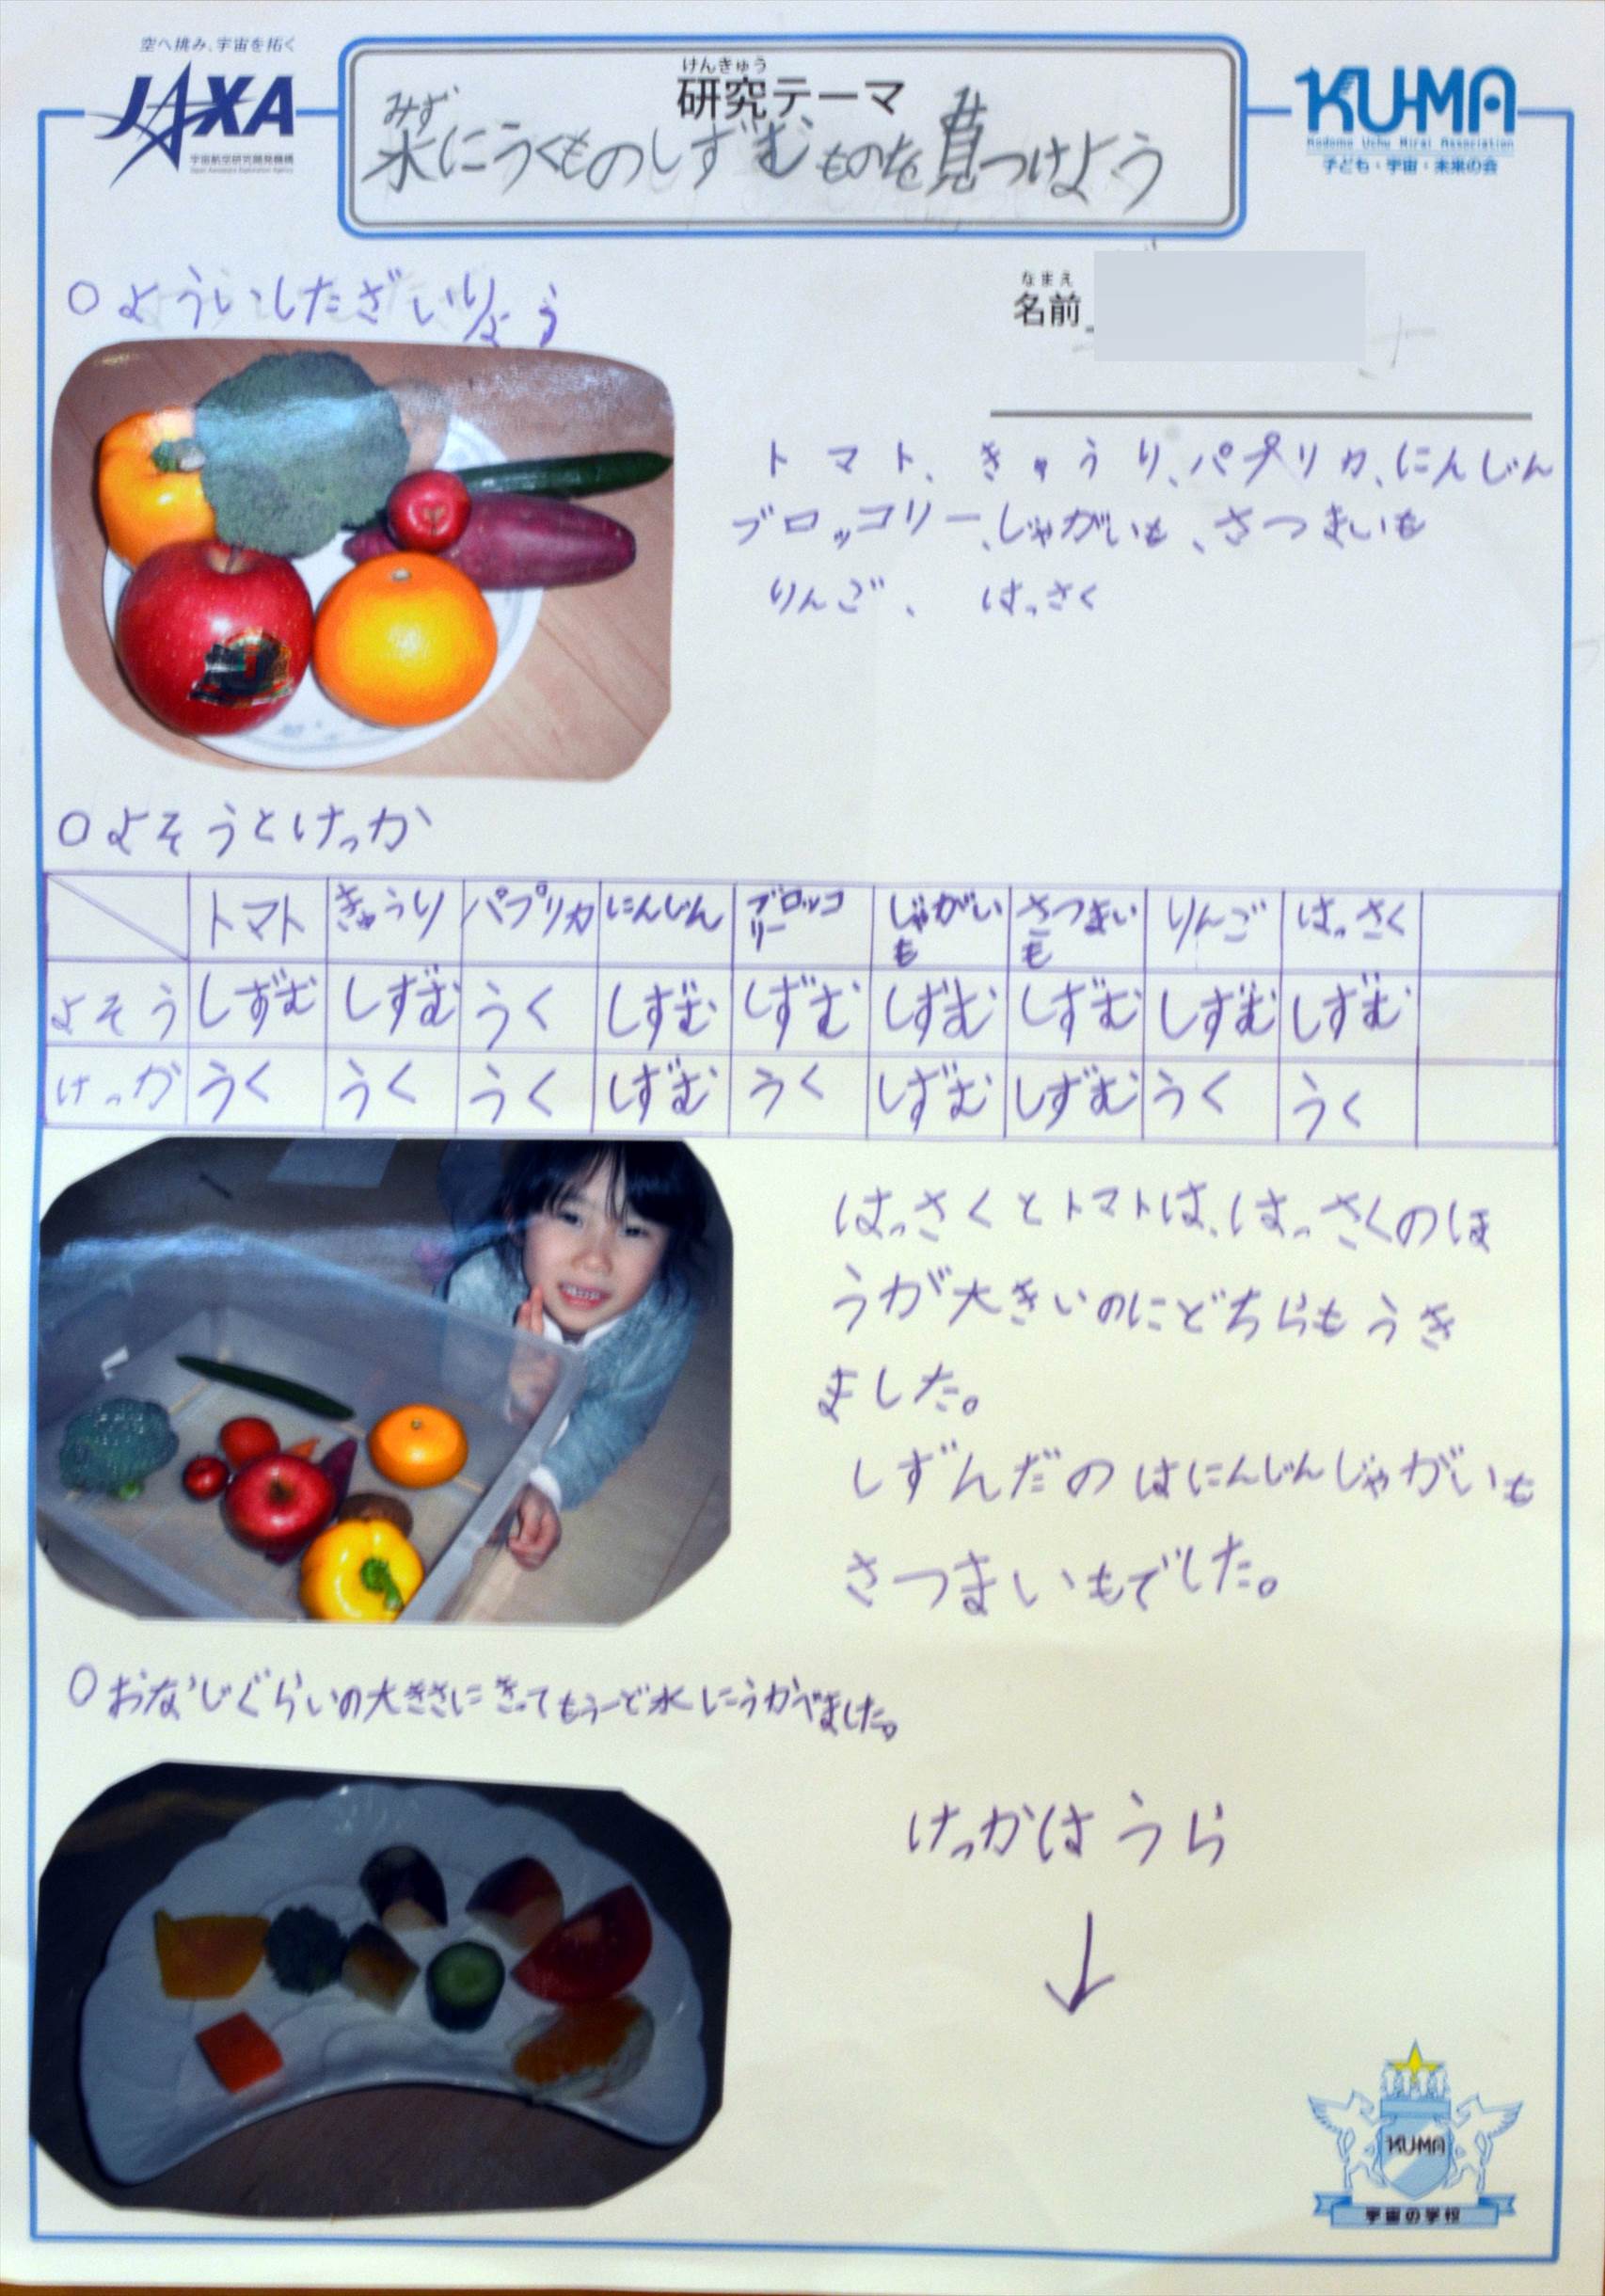 空へ挑み、宇宙を拓く
JAXA
宇宙航空研究開発機構
Japan Aerospace Exploration Agency
けんきゅう
研究テーマ
みず み
水にうくものしずむものを見つけよう
KU-MA
Kodomo Uchu Mirai Association
子ども・宇宙・未来の会
○よういしたざいりょう
なまえ
名前
トマト、きゅうり、パプリカ、にんじん
ブロッコリー、じゃがいも、さつまいも
りんご、はっさく
○よそうとけっか
トマト きゅうり パプリカ にんじん ブロッコリー じゃがいも さつまいも りんご はっさく
よそう しずむ しずむ うく しずむ しずむ しずむ しずむ しずむ しずむ
けっか うく うく うく しずむ うく しずむ しずむ うく うく
はっさくとトマトは、はっさくのほ
うが大きいのにどちらもうき
ました。
しずんだのはにんじんじゃがいも
さつまいもでした。
○おなじぐらいの大きさにきってもう一ど水にうかべました。
けっかはうら
↓
KUMA
宇宙の学校